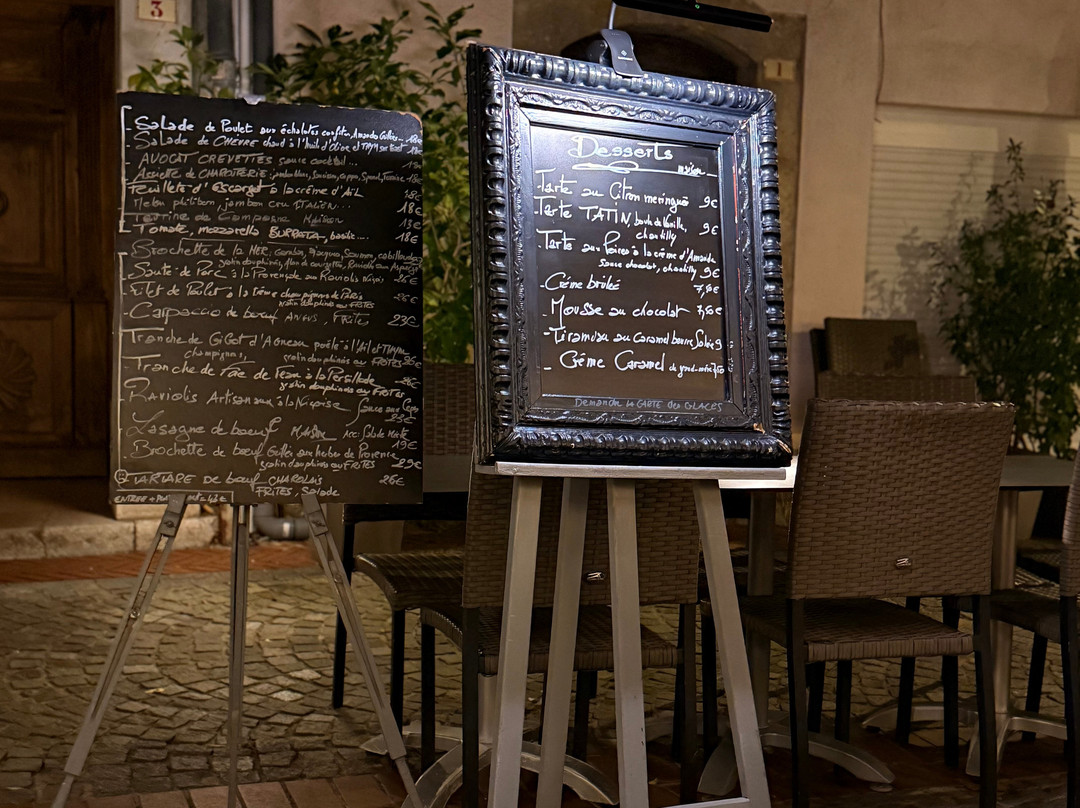 3
Salade de Poulet aux échalotes confites, Amandes Grillées...
Salade de CHEVRE chaud à l'huile d'Olive et THYM
AVOCAT CREVETTES sauce cocktail...
Assiette de CHARCUTERIE: jambon blanc, Saucisson, coppa, Speck, Terrine
Feuilleté d'escargot à la crème d'Ail 18€
Melon philibon, jambon cru ITALIEN... 18€
Terrine de Campagne Maison 13€
Tomate, mozzarella BURRATA, basilic.... 18€
Brochette de la MER, Gambas, Saumon, cabillaud
gratin dauphinois, de courgette, Raviolis aux Asperges
Sauté de Porc à la Provençale aux Raviolis Niçois 26€
Filet de Poulet à la Crème champignons de PARIS
gratin dauphinois ou FRITES 26€
Carpaccio de bœuf ANGUS, FRITES 23€
Tranche de GIGOT d'AGNEAU poêlé à l'Ail et THYM
champignons, gratin dauphinois ou FRITES
Tranche de Foie de Veau à la Persillade
gratin dauphinois ou FRITES
Raviolis Artisanaux à la Niçoise Sauce aux Cèpes
23€
Lasagne de bœuf MAISON Acc: Salade Verte 19€
Brochette de bœuf Grillée aux herbes de Provence
gratin dauphinois ou FRITES 29€
TARTARE de bœuf CHAROLAIS 26€
FRITES, Salade
ENTREE +
1
Desserts
maison
Tarte au Citron meringuée 9€
Tarte TATIN, boule de Vanille, 9€
chantilly
Tarte aux Poires à la crème d'Amande
Sauce chocolat, chantilly 9€
- Crème brûlée 7,50€
- Mousse au chocolat 7,50€
- Tiramisu au Caramel beurre Salé 9
- Crème Caramel de grand-mère 7,50
Demander LA CARTE des GLACES